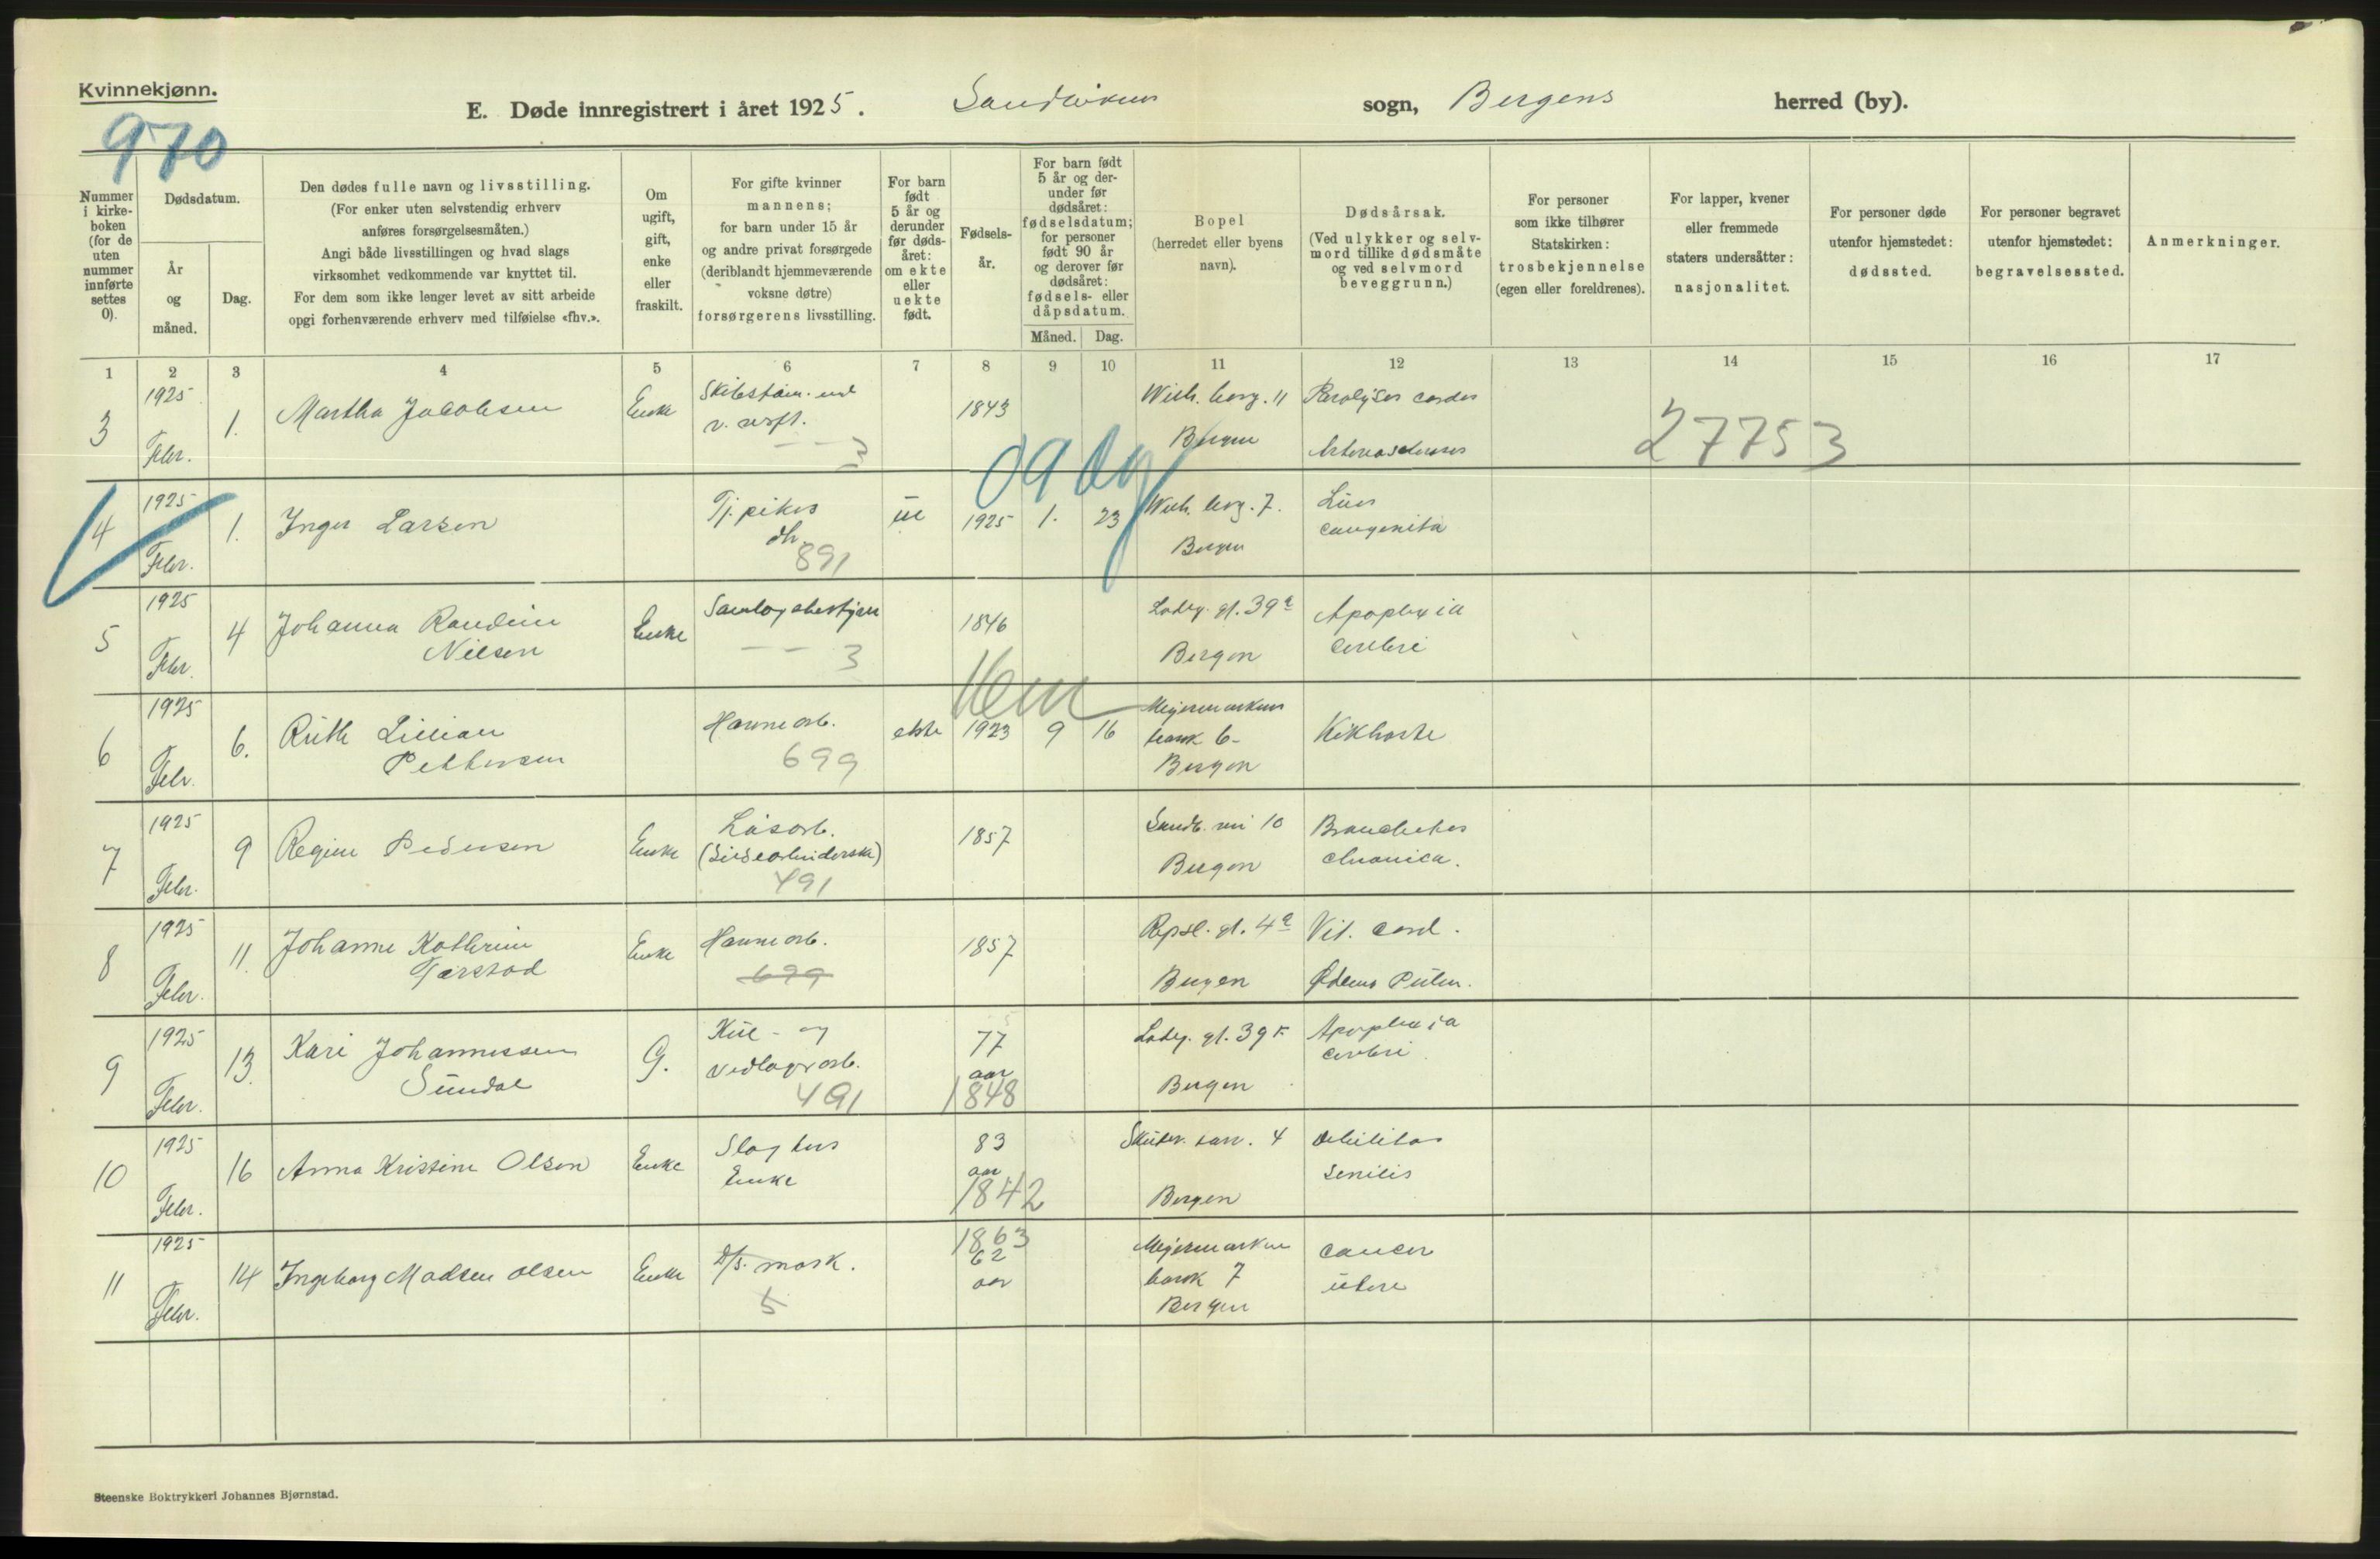 Kvinnekjønn.
970
E. Døde innregistrert i året 1925. Sandvikens sogn, Bergens herred (by).
Nummer i kirke-boken (for de uten nummer innførte settes 0).
Dødsdatum.
År og måned.
Dag.
Den dødes fulle navn og livsstilling.
(For enker uten selvstendig erhverv
anføres forsørgelsesmåten.)
Angi både livsstillingen og hvad slags
virksomhet vedkommende var knyttet til.
For dem som ikke lenger levet av sitt arbeide
opgi forhenværende erhverv med tilføielse «fhv.».
Om ugift, gift, enke eller fraskilt.
For gifte kvinner
mannens;
for barn under 15 år
og andre privat forsørgede
(deriblandt hjemmeværende
voksne døtre)
forsørgerens livsstilling.
For barn født 5 år og derunder før døds-året: om ekte eller uekte født.
Fødsels-år.
For barn født
5 år og der-
under før
dødsåret:
fødselsdatum;
for personer
født 90 år
og derover før
dødsåret:
fødsels- eller
dåpsdatum.
Måned. Dag.
Bopel
(herredet eller byens
navn).
Dødsårsak.
(Ved ulykker og selv-
mord tillike dødsmåte
og ved selvmord
beveggrunn.)
For personer
som ikke tilhører
Statskirken:
trosbekjennelse
(egen eller foreldrenes).
For lapper, kvener
eller fremmede
staters undersåtter:
nasjonalitet.
For personer døde
utenfor hjemstedet:
dødssted.
For personer begravet
utenfor hjemstedet:
begravelsessted.
Anmerkninger.
1 2 3 4 5 6 7 8 9 10 11 12 13 14 15 16 17
3 1925 Febr. 1. Martha Jacobsen Enke 1843 11 Bergen 27753
4 1925 Febr. 1. Inger Larsen Tj.pikes 891 ue 1925 1. 23 7. Bergen Lues congenita
5 1925 Febr. 4 Johanna Nilsen Enke 3 1846 Ladeg. gt. 39a Bergen Apoplexia cerebri
6 1925 Febr. 6. Ruth Lillian Pettersen Havnearb. 699 ekte 1923 9 16 Meyermarkens barak 6 Bergen Kikhoste
7 1925 Febr. 9 Regine Pedersen Enke Løsarb. 491 1857 Sandv. vei 10 Bergen Bronchites chronica.
8 1925 Febr. 11. Johanne Kathrine Enke Havnearb. 699 1857 Repsl. gt. 4a Bergen Vit. cord. Ødema Pulm.
9 1925 Febr. 13. Kari Johannessen Sundal G. Kul- og vedlagerarb. 491 77 aar 1848 Ladeg. gt. 39 Bergen Apoplexia cerebri
10 1925 Febr. 16 Anna Kristine Olsen Enke Enke 83 aar 1842 4 Bergen debilitas senilis
11 1925 Febr. 14 Ingeborg Madsen Olsen Enke D/S. mask. 5 1863 62 aar Meyermarken barak 7 Bergen cancer uteri
Steenske Boktrykkeri Johannes Bjørnstad.